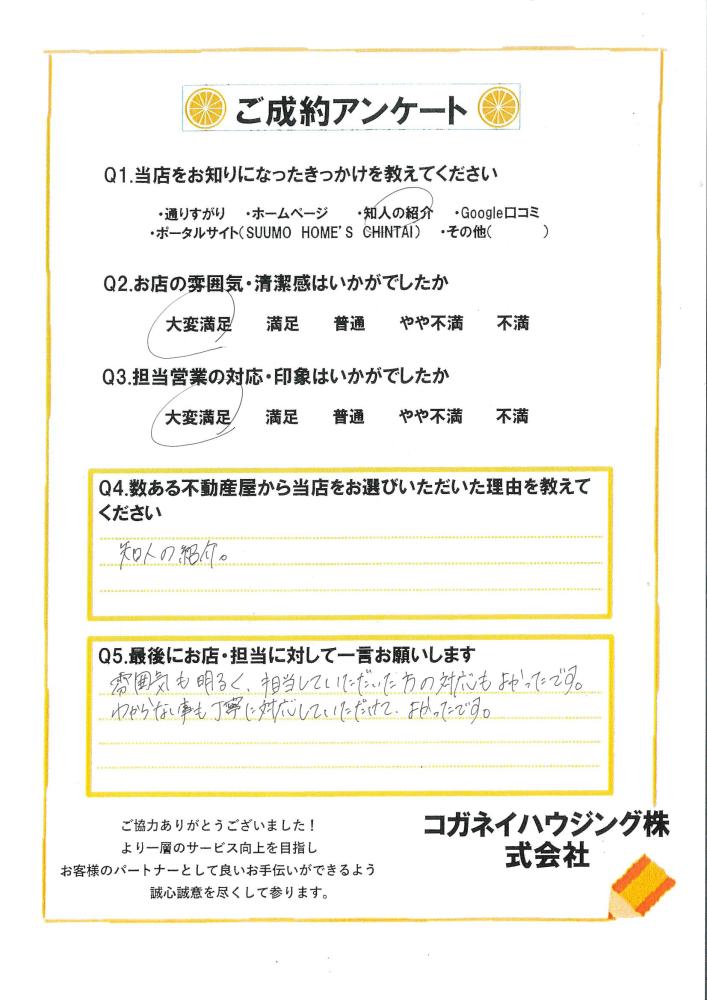 ご成約アンケート
Q1.当店をお知りになったきっかけを教えてください
・通りすがり ・ホームページ ・知人の紹介 ・Google口コミ
・ポータルサイト(SUUMO HOME'S CHINTAI) ・その他( )
Q2.お店の雰囲気・清潔感はいかがでしたか
大変満足 満足 普通 やや不満 不満
Q3.担当営業の対応・印象はいかがでしたか
大変満足 満足 普通 やや不満 不満
Q4.数ある不動産屋から当店をお選びいただいた理由を教えて
ください
知人の紹介。
Q5.最後にお店・担当に対して一言お願いします
雰囲気も明るく、担当していただいた方の対応もよかったです。
わからない事も丁寧に対応していただけて、よかったです。
ご協力ありがとうございました！
より一層のサービス向上を目指し
お客様のパートナーとして良いお手伝いができるよう
誠心誠意を尽くして参ります。
コガネイハウジング株
式会社